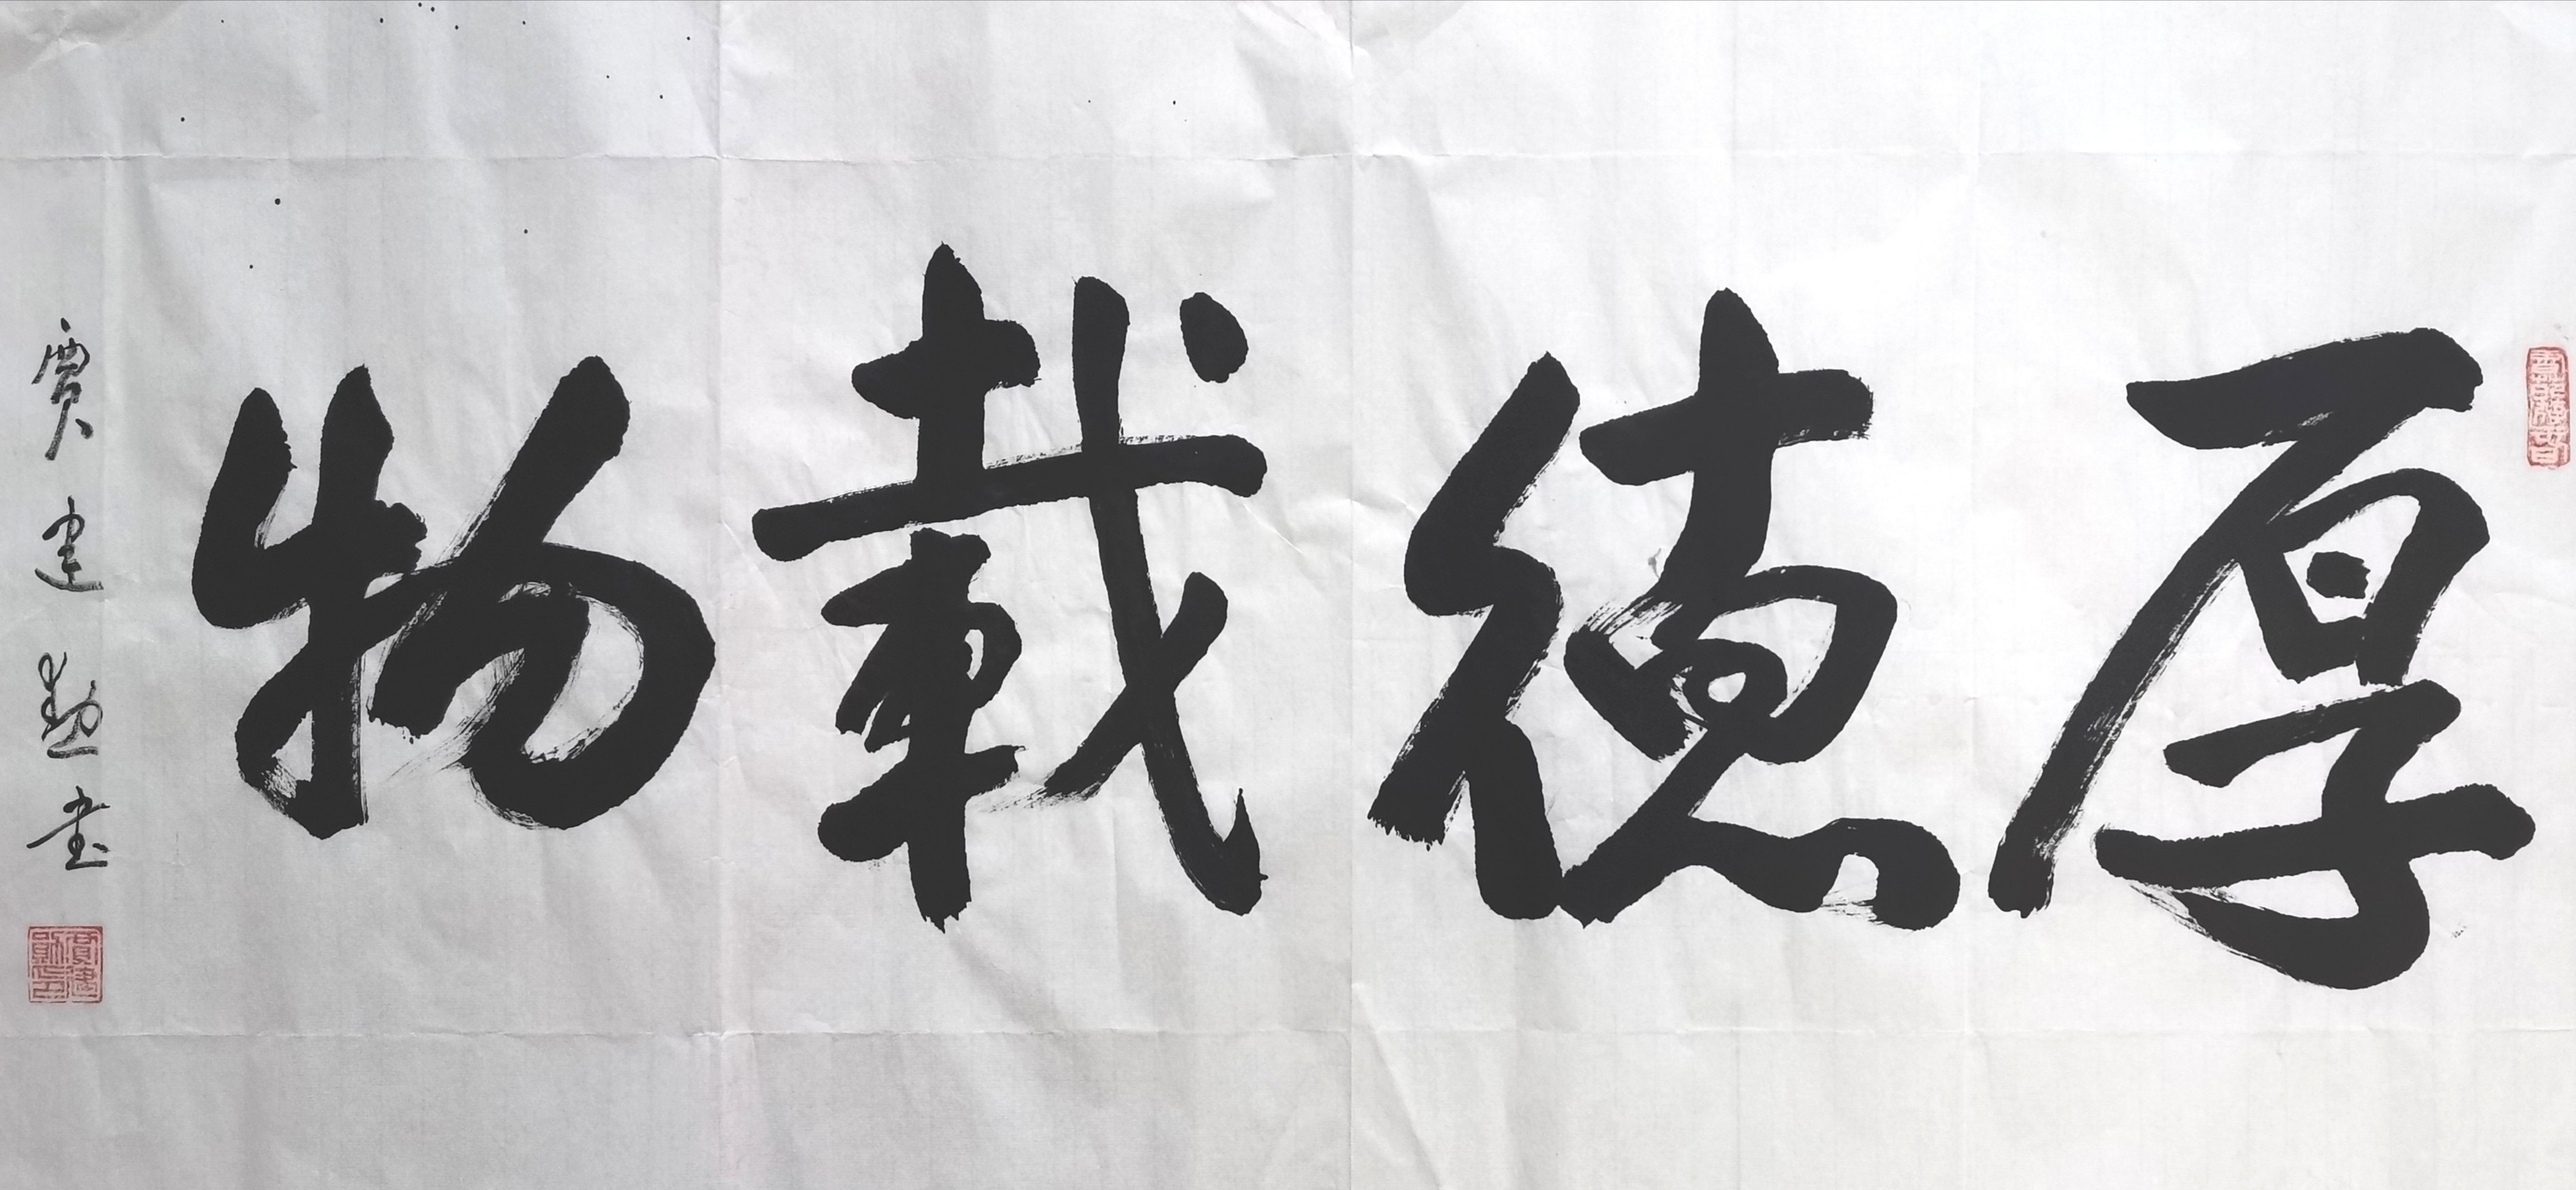 厚德載物
賈建勳書
賈建勛印